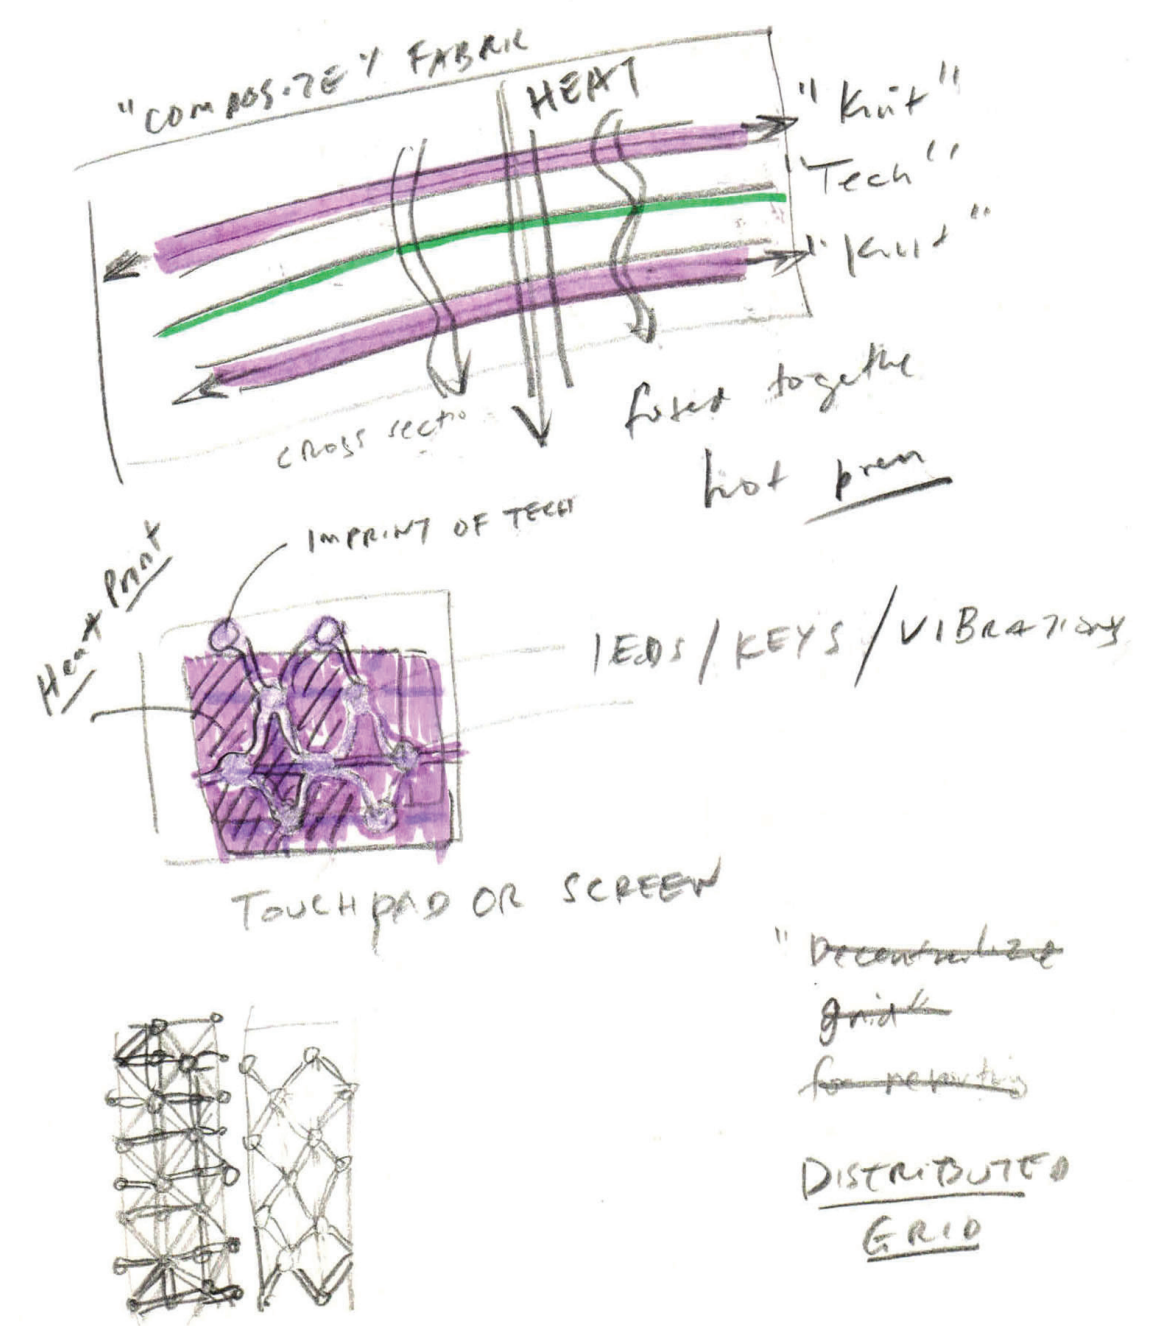 "COMPOSITE" FABRIC
HEAT
"Knit"
"Tech"
"Knit"
cross sectio
fused togethe
hot press
IMPRINT OF TECH
Heat Print
LEDS/KEYS/VIBRATIONS
TOUCHPAD OR SCREEN
"Decentralize
grid"
for reporting
DISTRIBUTED
GRID